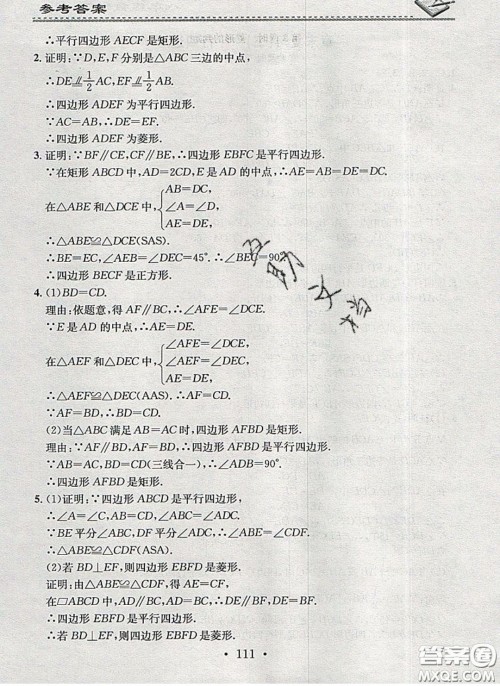 参考答案
∴平行四边形 AECF 是矩形.
2. 证明:∵D,E,F 分别是△ABC 三边的中点,
∴DE⫽1/2 AC,EF⫽1/2 AB.
∴四边形 ADEF 为平行四边形.
∵AC=AB,∴DE=EF.
∴四边形 ADEF 为菱形.
3. 证明:∵BF∥CE,CF∥BE,∴四边形 EBFC 是平行四边形.
∵在矩形 ABCD 中,AD=2CD,E 是 AD 的中点,∴AE=AB=DE=DC.
AB=DC,
在△ABE 和△DCE 中,{∠A=∠D,
AE=DE,
∴△ABE≌△DCE(SAS).
∴BE=EC,∠AEB=∠DEC=45°.∴∠BEC=90°.
∴四边形 BECF 是正方形.
4. (1)BD=CD.
理由:依题意,得 AF∥BC,∴∠AFE=∠DCE.
∵E 是 AD 的中点,∴AE=DE.
∠AFE=∠DCE,
在△AEF 和△DEC 中,{∠AEF=∠DEC,
AE=DE,
∴△AEF≌△DEC(AAS).∴AF=CD.
∵AF=BD,∴BD=CD.
(2)当△ABC 满足 AB=AC 时,四边形 AFBD 是矩形.
理由:∵AF∥BD,AF=BD,∴四边形 AFBD 是平行四边形.
∵AB=AC,BD=CD(三线合一),∴∠ADB=90°.
∴四边形 AFBD 是矩形.
5. (1)证明:∵四边形 ABCD 是平行四边形,
∴∠A=∠C,AB=CD,∠ABC=∠ADC.
∵BE 平分∠ABC,DF 平分∠ADC,∴∠ABE=∠CDF.
∴△ABE≌△CDF(ASA).
(2)若 BD⊥EF,则四边形 EBFD 是菱形.
证明:由△ABE≌△CDF,得 AE=CF,
在▱ABCD 中,AD∥BC,AD=BC,∴DE∥BF,DE=BF.
∴四边形 EBFD 是平行四边形.
∴若 BD⊥EF,则四边形 EBFD 是菱形.
• 111 •
MXQE.COM